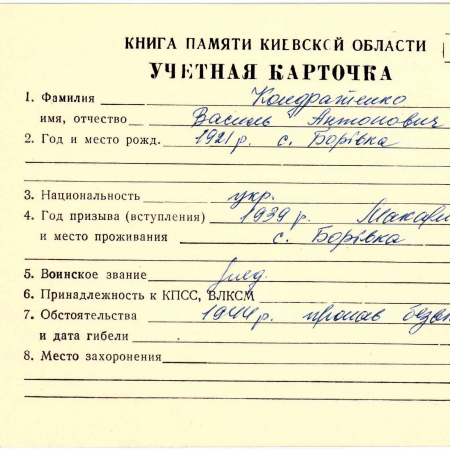 КНИГА ПАМЯТИ КИЕВСКОЙ ОБЛАСТИ
УЧЕТНАЯ КАРТОЧКА
1. Фамилия Кондратенко
имя, отчество Василь Антонович
2. Год и место рожд. 1921 р. с. Борівка
3. Национальность укр.
4. Год призыва (вступления) 1939 р. Макарі
и место проживания с. Борівка
5. Воинское звание
6. Принадлежность к КПСС, ВЛКСМ
7. Обстоятельства 1944 р. пропав безв
и дата гибели
8. Место захоронения